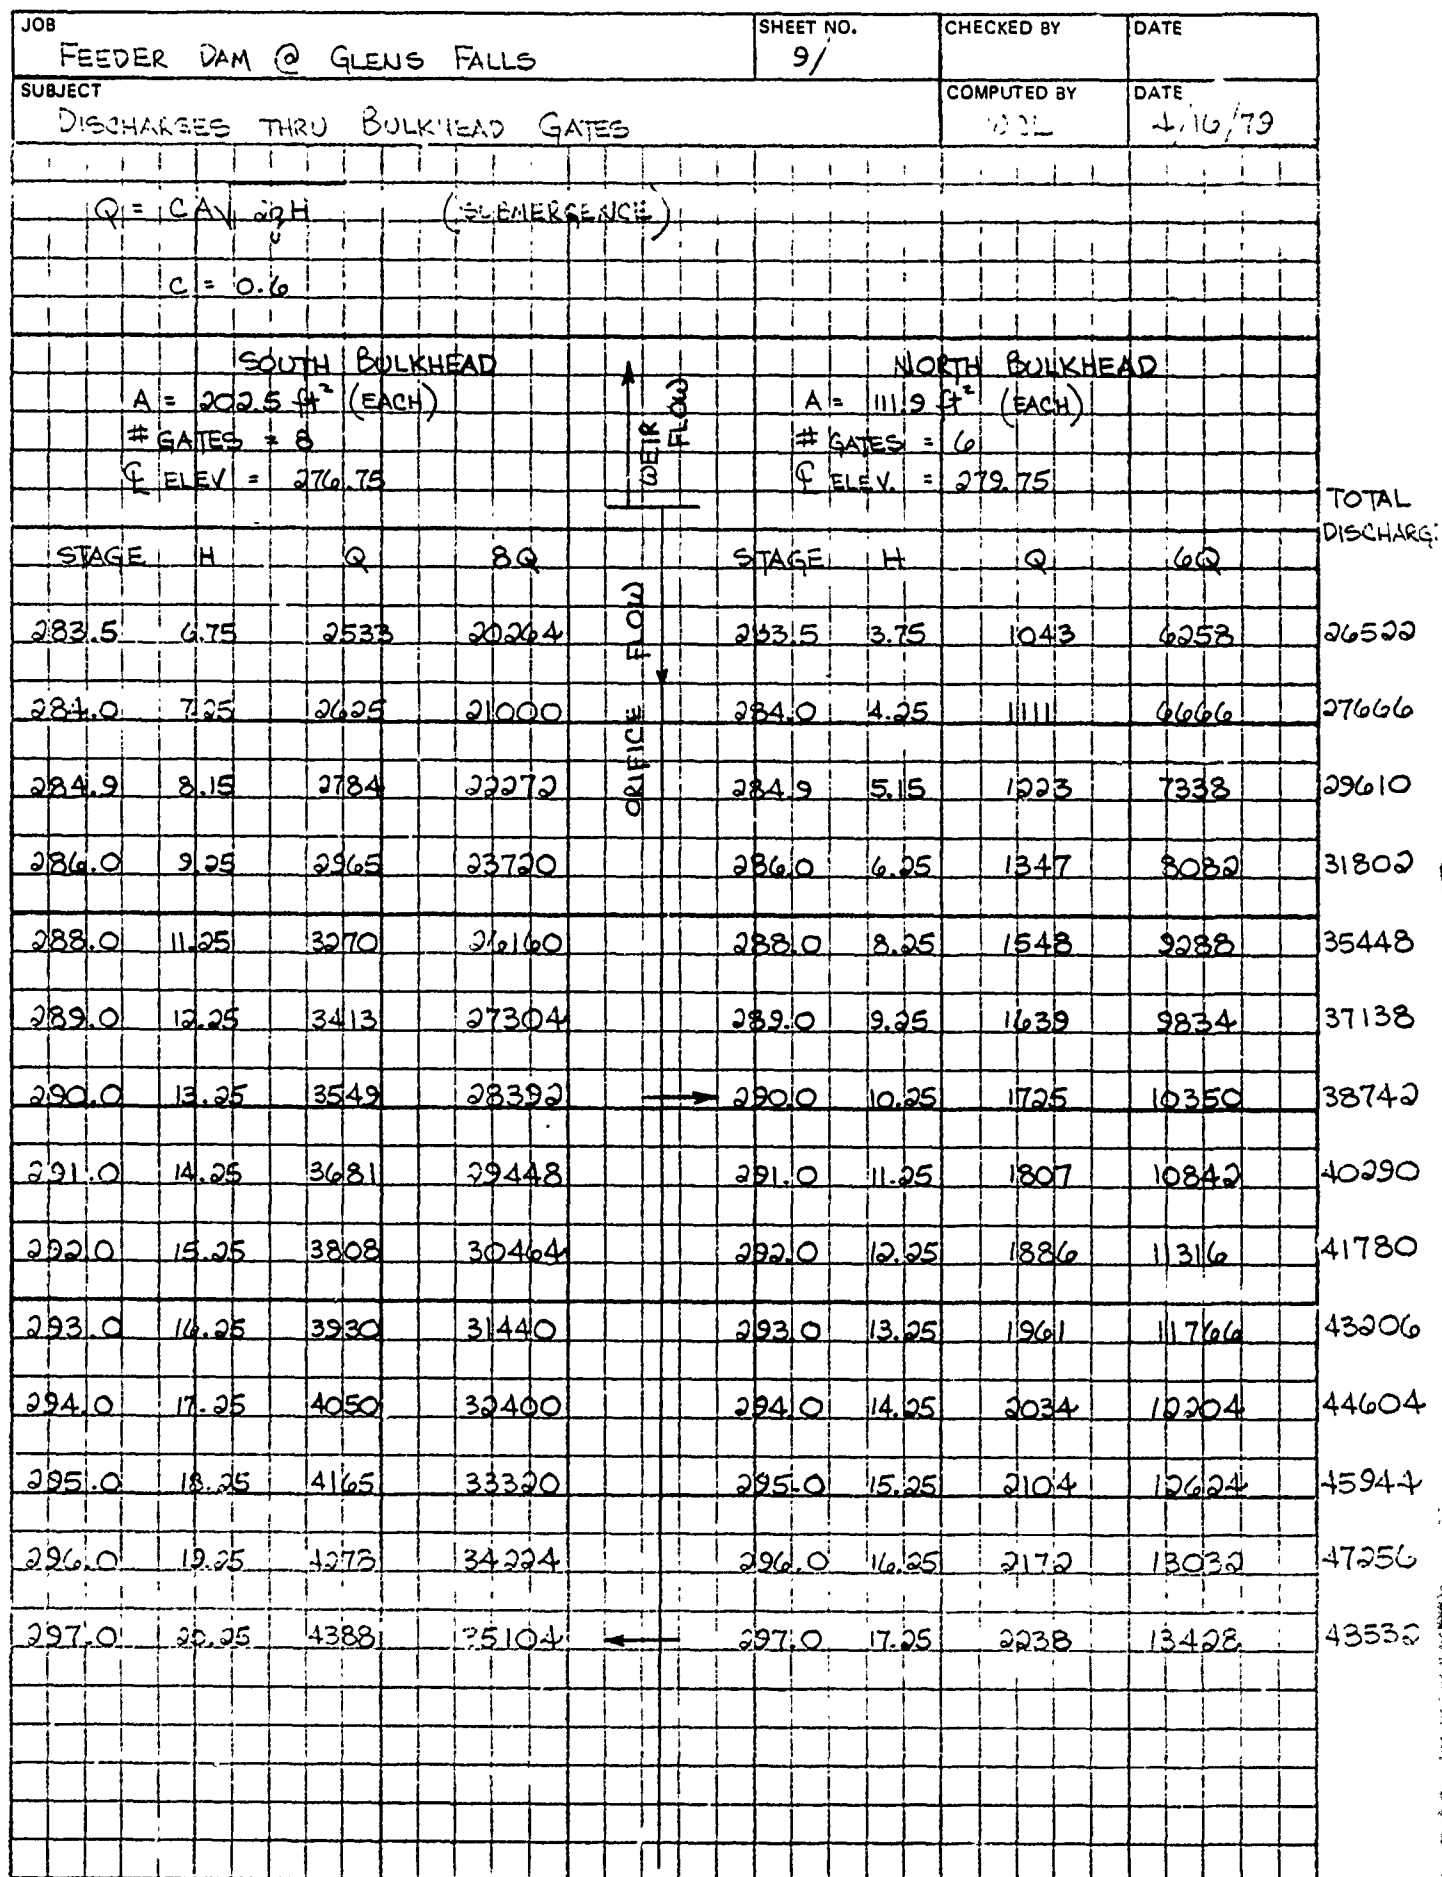 JOB SHEET NO. CHECKED BY DATE
FEEDER DAM @ GLENS FALLS 9/
SUBJECT COMPUTED BY DATE
DISCHARGES THRU BULKHEAD GATES 4/16/79
Q = CA√2gH (SUBMERGENCE)
C = 0.6
SOUTH BULKHEAD
A = 202.5 ft² (EACH)
# GATES = 8
℄ ELEV = 276.75
WEIR FLOW
ORIFICE FLOW
NORTH BULKHEAD
A = 111.9 ft² (EACH)
# GATES = 6
℄ ELEV. = 279.75
TOTAL
DISCHARG.
STAGE H Q 8Q STAGE H Q 6Q
283.5 6.75 2533 20264 283.5 3.75 1043 6258 26522
284.0 7.25 2625 21000 284.0 4.25 1111 6666 27666
284.9 8.15 2784 22272 284.9 5.15 1223 7338 29610
286.0 9.25 2965 23720 286.0 6.25 1347 8082 31802
288.0 11.25 3270 26160 288.0 8.25 1548 9288 35448
289.0 12.25 3413 27304 289.0 9.25 1639 9834 37138
290.0 13.25 3549 28392 290.0 10.25 1725 10350 38742
291.0 14.25 3681 29448 291.0 11.25 1807 10842 40290
292.0 15.25 3808 30464 292.0 12.25 1886 11316 41780
293.0 16.25 3930 31440 293.0 13.25 1961 11766 43206
294.0 17.25 4050 32400 294.0 14.25 2034 12204 44604
295.0 18.25 4165 33320 295.0 15.25 2104 12624 45944
296.0 19.25 4278 34224 296.0 16.25 2172 13032 47256
297.0 20.25 4388 35104 297.0 17.25 2238 13428 48532